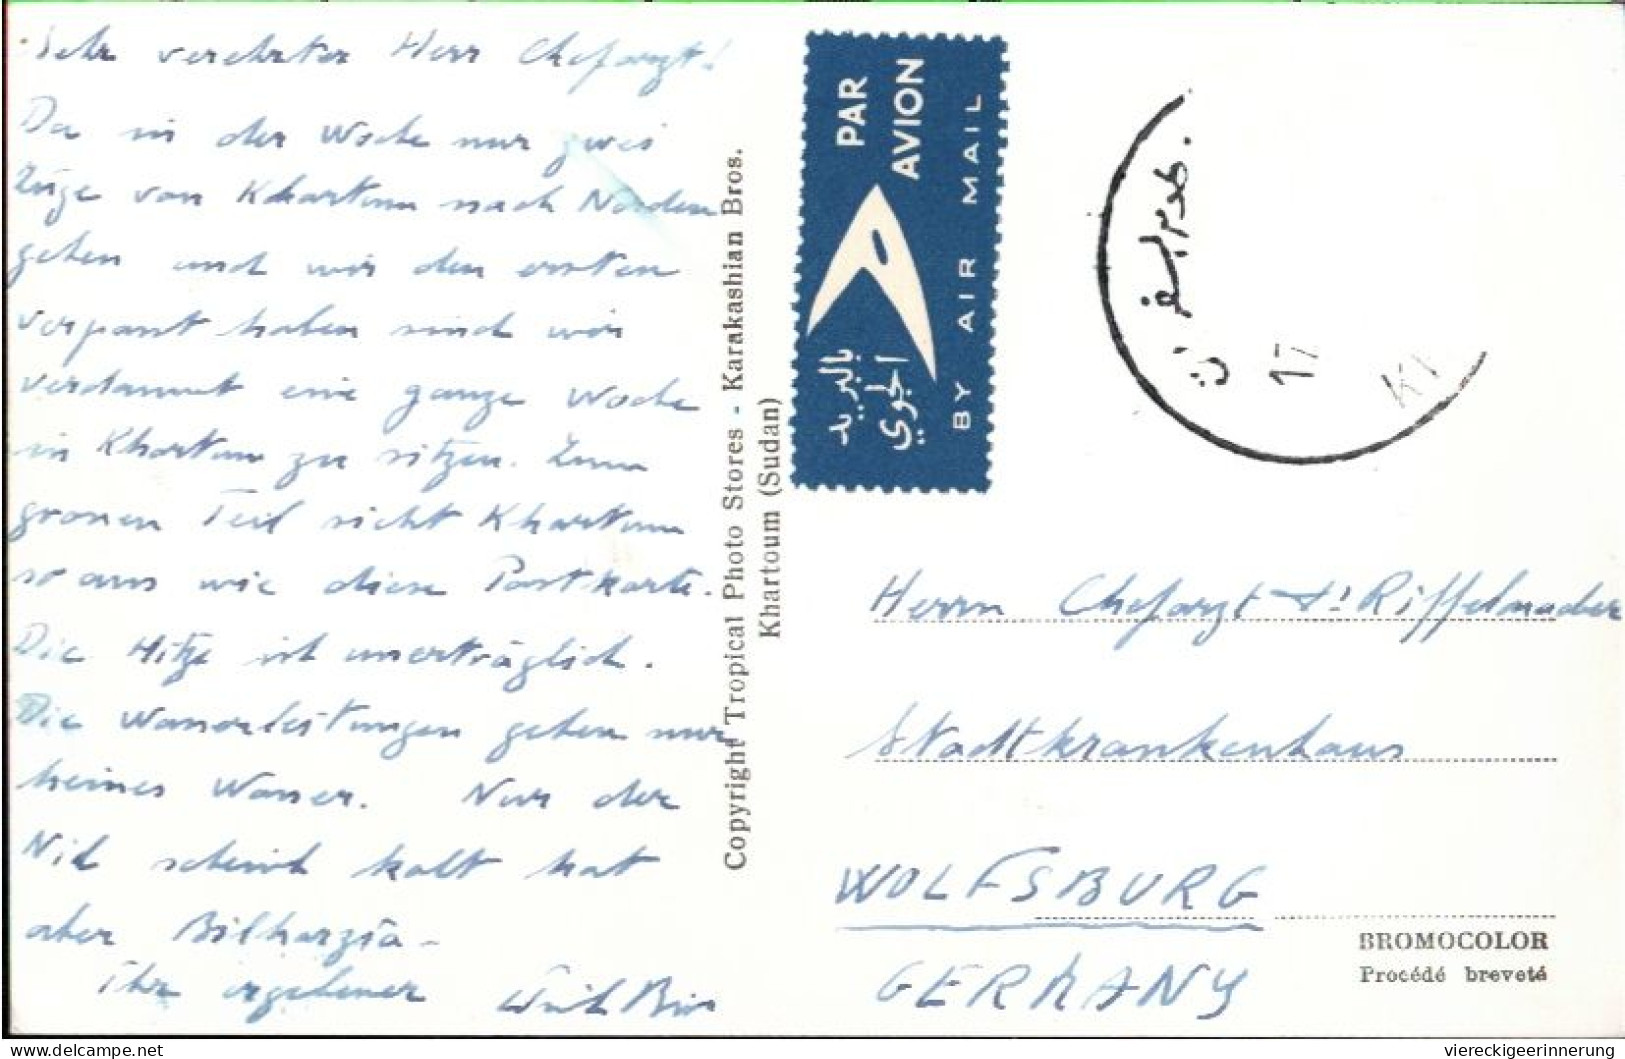 Sehr verehrter Herr Chefarzt!
Da in der Woche nur zwei
Züge von Khartum nach Norden
gehen und wir den ersten
verpasst haben sind wir
verdammt eine ganze Woche
in Khartum zu sitzen. Zum
grossen Teil sieht Khartum
so aus wie diese Postkarte.
Die Hitze ist unerträglich.
Die Wasserleitungen geben nur
heisses Wasser. Nur der
Nil scheint kalt hat
aber Bilharzia-
Ihr ergebener
Copyright Tropical Photo Stores - Karakashian Bros.
Khartoum (Sudan)
PAR
AVION
بالبريد
الجوي
BY AIR MAIL
17
Herrn Chefarzt Dr Riffelmacher
Stadtkrankenhaus
WOLFSBURG
GERMANY
BROMOCOLOR
Procédé breveté
delcampe.net
viereckigeerinnerung